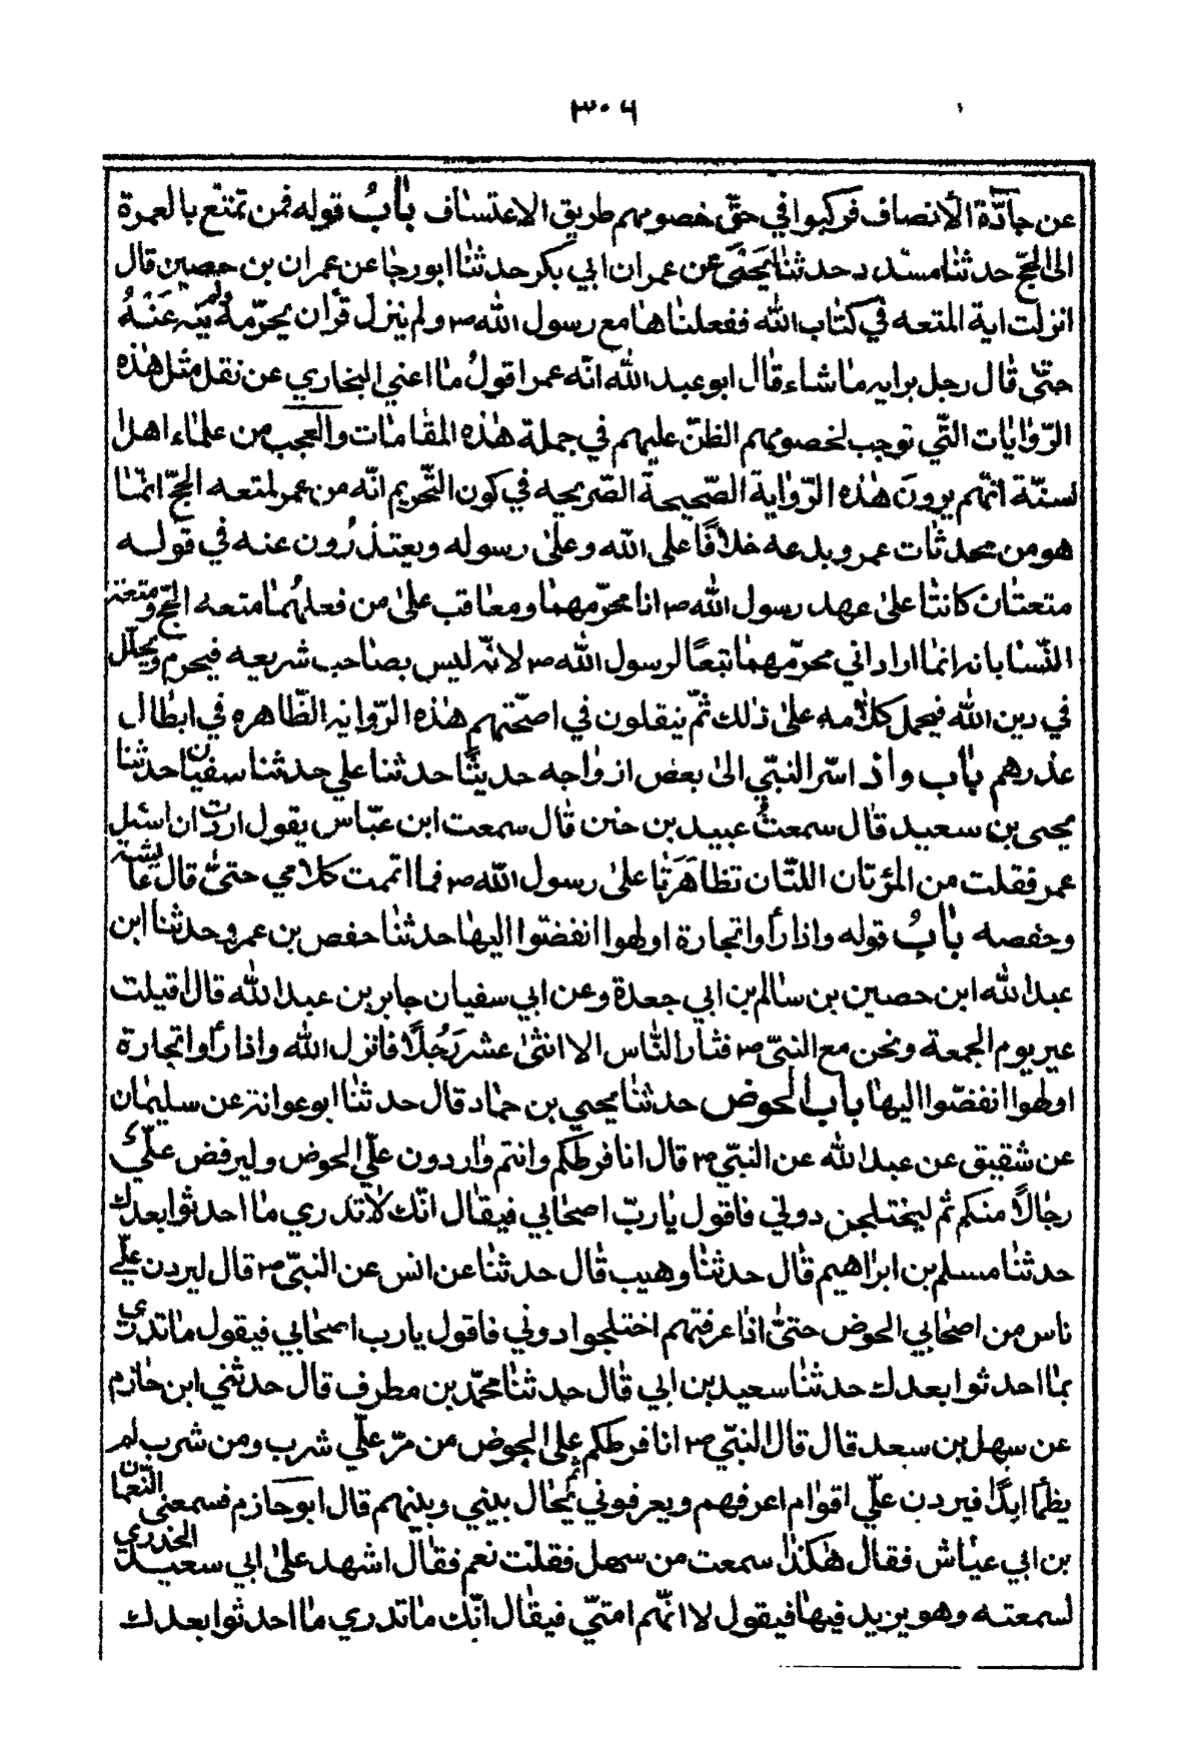 ٣٠٦
عن جادّة الأنصاف فركبوا في حقّ خصومهم طريق الاعتساف بٰابُ قوله فمن تمتّع بالعمرة
الى الحجّ حدثنا مسدد حدثنا يَحيَى عن عمران ابي بكر حدثنا ابو رجا عن عمران بن حصين قال
انزلت اية المتعه في كتاب الله ففعلناها مع رسول الله ص ولم ينزل قرأن يحرّمه ولم ينه عَنْهُ
حتّى قال رجل برايه ما شاء قال ابو عبد الله انّه عمر اقولُ ما اغني البخاري عن نقل مثل هذه
الرّوايات التّي توجب لخصومهم الظنّ عليهم في جملة هذه المقامات والعجب من علماء اهل
لسنّة انّهم يروونَ هذه الرّواية الصّحيحة الصّريحه في كون التّحريم انّه من عمر لمتعه الحجّ انّما
هو من محدثات عمر وبدعه خلافًا على الله وعلى رسوله ويعتذرُون عنه في قوله
متعتان كانتا على عهد رسول الله ص انا محرّمهما ومعاقب على من فعلهُما متعه الحجّ ومتعة
النّسا بانه انما اراد اني محرّمهما تبعًا لرسول الله ص لانّه ليس بصاحب شريعه فيحرم ويحلّل
في دين الله فيحمل كلامه على ذلك ثمّ ينقلون في اصحّتهم هذه الرّوايه الظّاهره في ابطال
عذرهم بٰاب واذ اسرّ النبّي الى بعض ازواجه حديثًا حدثنا علي حدثنا سفيان حدثنا
يحيى بن سعيد قال سمعتُ عبيد بن حنن قال سمعت ابن عبّاس يقول اردت ان اسئل
عمر فقلت من المرٔتان اللتّان تظاهَرَتا على رسول الله ص فما اتممت كلامي حتىّ قال عايشة
وحفصه بٰابُ قوله واذا رأوا تجارة او لهوا انفضّوا اليها حدثنا حفص بن عمر وحدثنا ابن
عبد الله ابن حصين بن سالم بن ابي جعدة وعن ابي سفيان جابر بن عبد الله قال اقبلت
عير يوم الجمعة ونحن مع النبّي ص فثار النّاس الا اثنى عشر رَجُلًا فانزل الله واذا رأوا تجارة
او لهوا انفضّوا اليها باب الحوض حدثنا يحيى بن حماد قال حدثنا ابو عوانة عن سليمان
عن شقيق عن عبد الله عن النبّي ص قال انا فرطكم وانتم واردون علّي الحوض وليرفض علّيُ
رجالًا منكم ثم ليختلجن دوني فاقول يا ربّ اصحابي فيقال انّك لا تدري ما احدثوا بعدك
حدثنا مسلم بن ابراهيم قال حدثنا وهيب قال حدثنا عن انس عن النبّي ص قال ليردن علّي
ناس من اصحابي الحوض حتىّ اذا عرفتهم اختلجوا دوني فاقول يا رب اصحابي فيقول ما تدري
بما احدثوا بعدك حدثنا سعيد بن ابي قال حدثنا محمّد بن مطرف قال حدثني ابن حازم
عن سهل بن سعد قال قال النبّي ص انا فرطكم على الحوض من مرّ علّي شرب ومن شرب لم
يظمأ ابدًا فيردن علّي اقوام اعرفهم ويعرفوني ثم يُحال بيني وبينهم قال ابو حازم فسمعني النّعمان
بن ابي عيّاش فقال هكذا سمعت من سهل فقلت نعم فقال اشهد على ابي سعيد الخدري
لسمعته وهو يزيد فيها فيقول لا انّهم امتيّ فيقال انّك ما تدري ما احدثوا بعدك